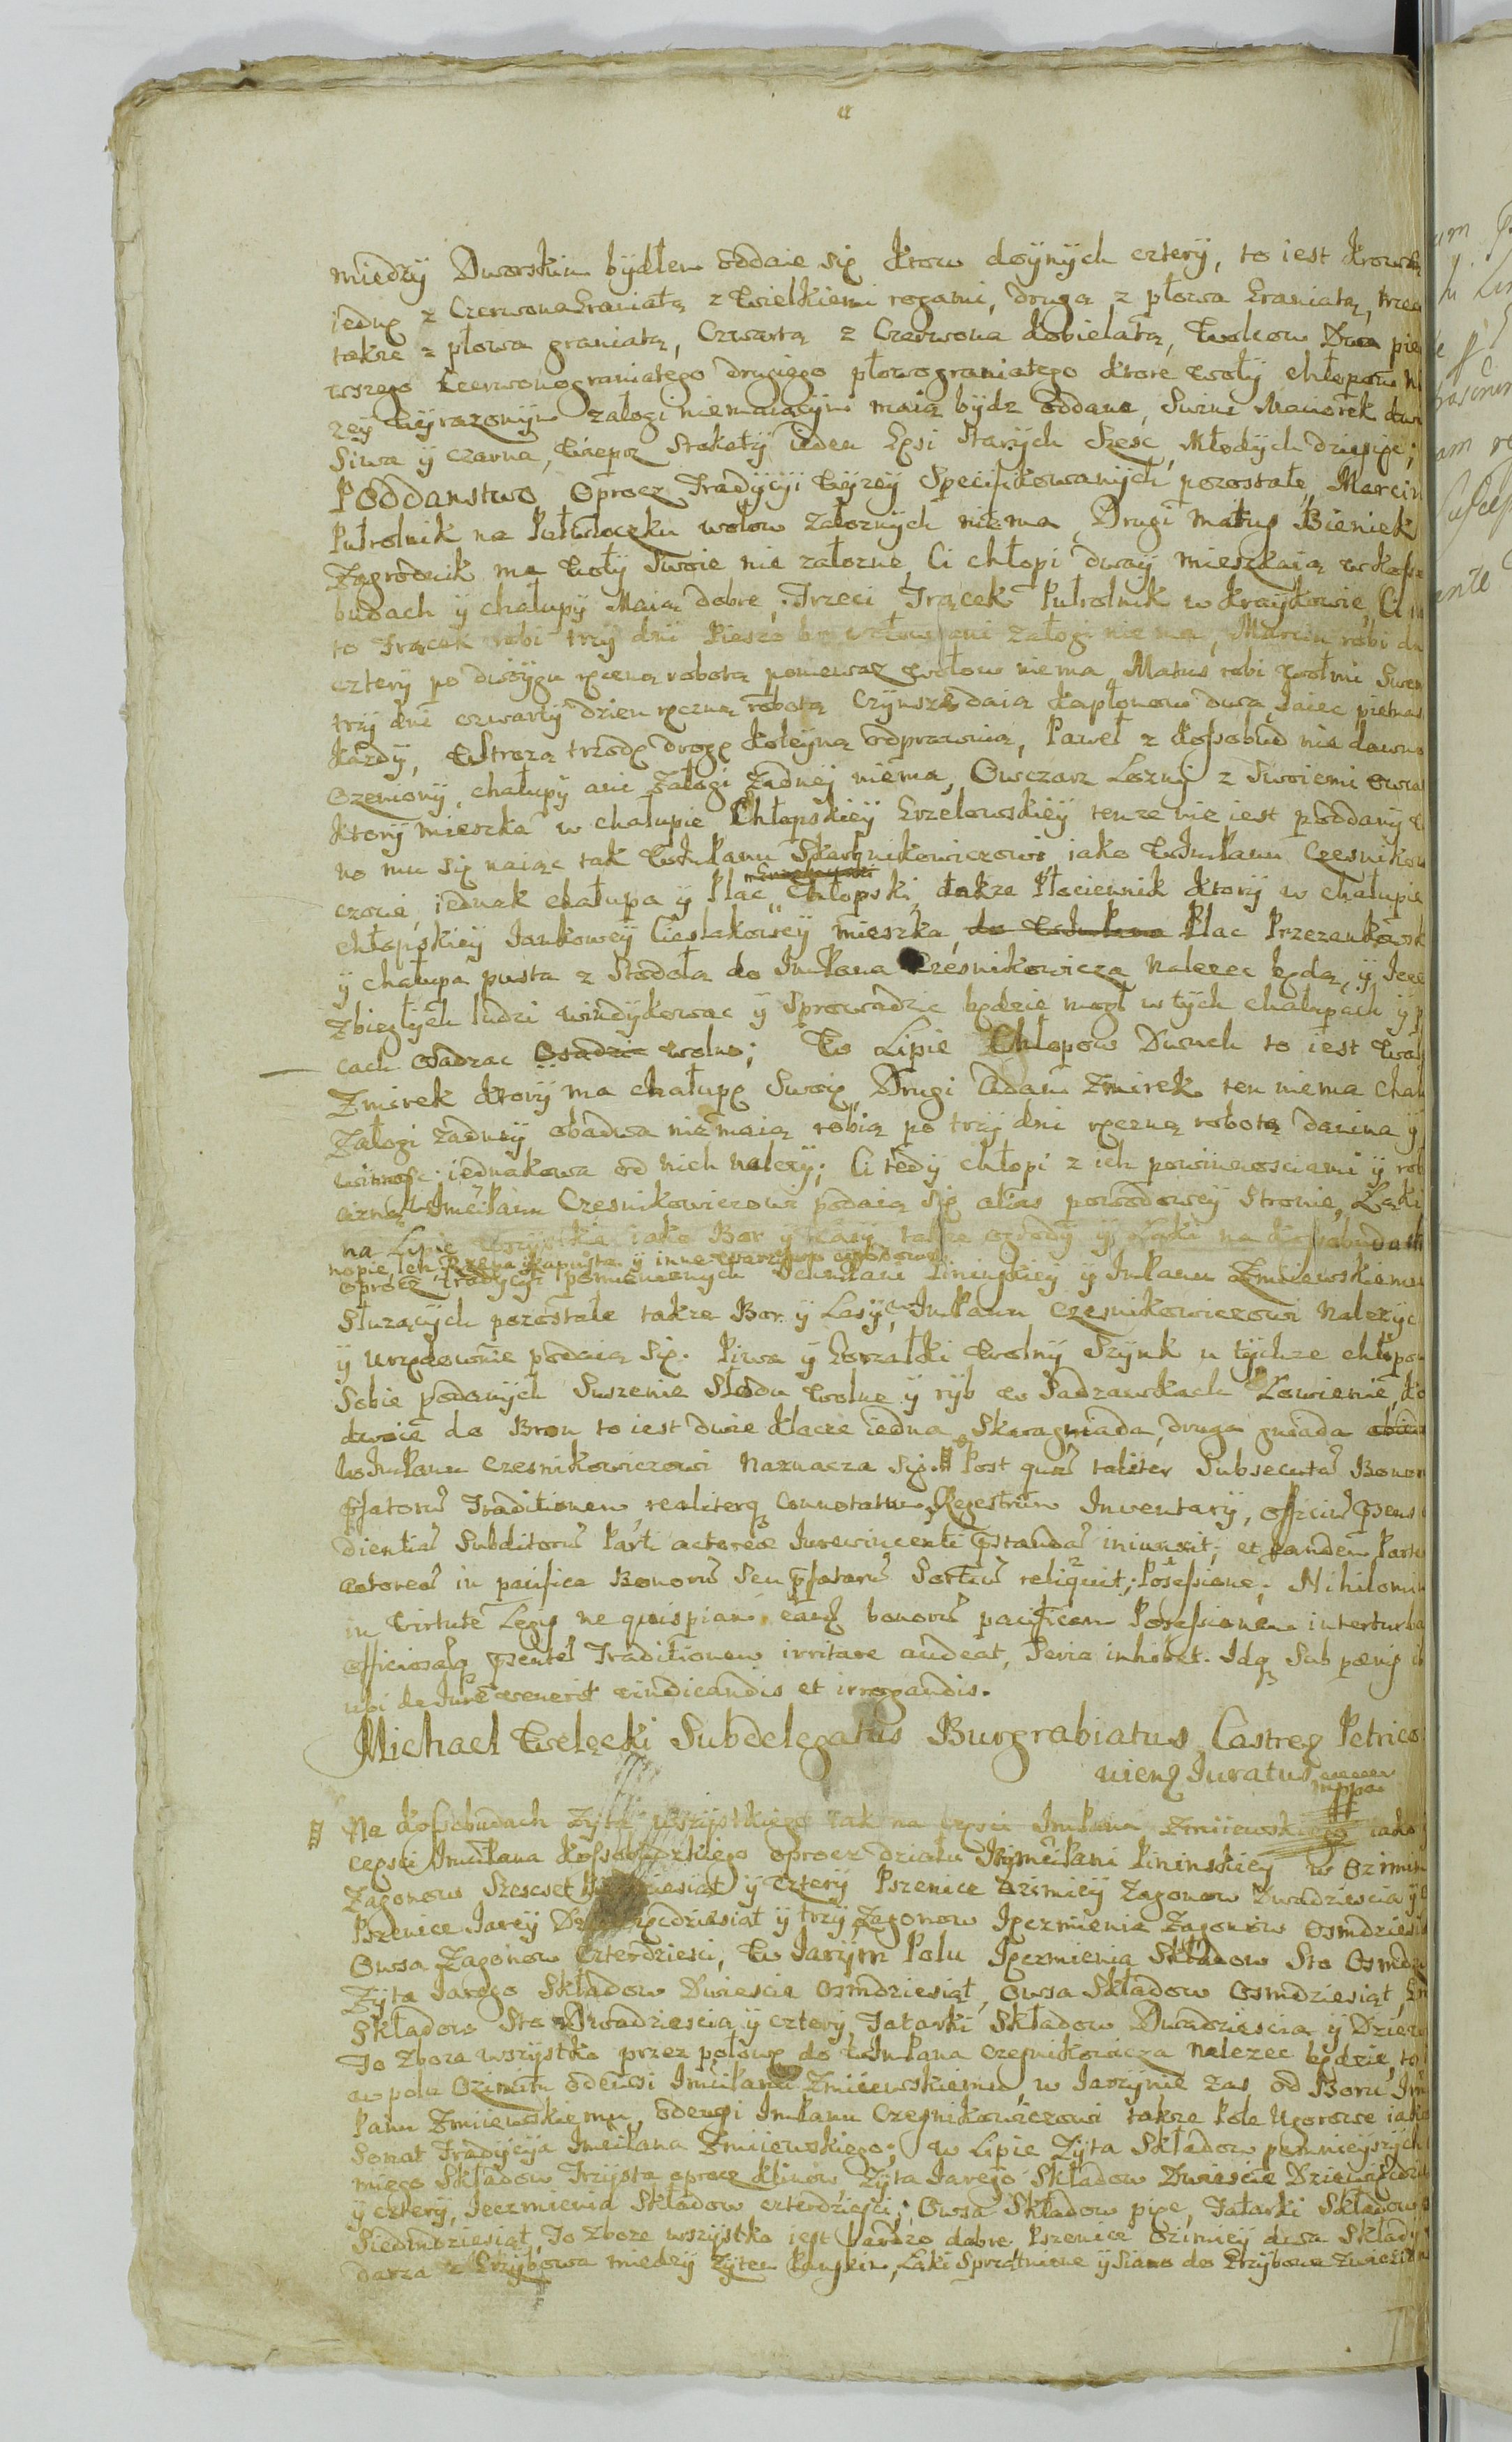 między Dworskim bydłem oddaie się krow doynych cztery, to iest krowę
iednę z Czerwona graniatą z wielkiemi rogami, drugą z płowa graniatą, trzec
takze z płowa graniatą, Czwartą z Czerwona kobielatą, Wołow Dwa pie
wszego Czerwonograniatego drugiego płowograniatego ktore woły chłopom
zey wyrazonym załogi niemaiącym maią bydz oddane, Swini Maciorek dwie
Siwa y czarna, Wieprz Srokaty ieden Gęsi Starych Szesc, Młodych dziesięć;
Poddanstwo oprocz Tradycyi wyzey Specifikowanych pozostałe, Marcin
Pułrolnik na Pułwłoczku wołow załoznych niema, Drugi Matus Bieniek
Zagrodnik ma woły Swoie nie załozne, Ci chłopi dway mieszkaią w kosso
budach y chałupy Maią dobre, Trzeci Trącek Pułrolnik w kraykowie, Ci
to Trącek robi trzy dni Pieszo bo wołow ani załogi nie ma, Marcin robi dni
cztery po dwoygu ręczną robotą poniewaz wołow niema Matus robi wołmi Swem
trzy dni czwarty dzien ręczną robotą Czynszę daią kapłonow dwa Jaiec pietnas
kazdy, Stroza trzodę drogę koleyną odprawuią, Paweł z kossobud nie dawno
ozeniony, chałupy ani załogi zadney niema, Owczarz Lozny z Swoiemi owca
ktory mieszka w chałupie Chłopskiey Grzelowskiey tenze nie iest poddany
no mu się naiąc tak WJmPanu Skarbnikowiczowi iako WJmPanu Czesnikow
czowi, iednak chałupa y Plac Chłopski, takze Płociennik ktory w chałupie
chłopskiey Jankowey Cieslakowey mieszka, Plac Przezankowsk
y chałupa pusta z Stodoła do JmPana Czesnikowicza Nalezec będą, y Jeg
zbiegłych ludzi windykowac y Sprowadzic będzie mogł w tych chałupach y p
cach osadzac Osadzic wolno; W Lipie Chłopow Dwuch to iest Wal
Zmirek ktory ma chałupę Swoię, Drugi Adam Zmirek ten niema chał
Załogi zadney obadwa niemaią robią po trzy dni ręczną robotą danina y
winnosc iednakowa od nich nalezy; Ci tedy chłopi z ich powinnosciami y rob
cizną JmciPanu Czesnikowiczowi podaią się alias powodowey Stronie, Łąki
na Lipie wszystkie iako Bor y Lasy, takze ogrody y Łąki na kossobudach
nopie, len Rzepa kapusta y inne warzywa ogrodowe
oprocz Tradycyi pomienionych JchmPani Pininskiey y JmPanu Zmiiewskiemu
Słuzących pozostałe takze Bor y Lasy, JmPanu Czesnikowiczowi Nalezyc
y urzędownie podaią się. Piwa y Gorzałki wolny Szynk u tychze chłopow
Sobie podanych Suszenie Słodu wolne y ryb w Sadzawkach Łowienie, ko
dwoie do Bron to iest dwie klacze iedna Skarogniada, druga gniada
WJmPanu Czesnikowiczowi Naznacza się. Post quam taliter Subsecutam Bonor
pfatorum Traditionem, realiterq connotatum Regestrum Inventarij, officium psens
dientiam Subditorum Parti actoreae Jurevincenti pstandam iniunxit; et eandem Parte
actoream in pacifica Bonorum Seu pfatarum Sortium reliquit; Posessione; Nihilomin
in Virtute Legis ne quispiam eandem bonorum pacificam Posessionem interturba
officiosamq psentem Traditionem irritare audeat, Seria inhibet. Idq Sub paenis in
ubi de Jure venerit vindicandis et irrogandis.
Michael Wełęcki Subdelegatus Burgrabiatus Castren Petrico
vien Juratus mppa
Na kossobudach Zyta wszystkiego tak na części JmPana Zmiiewskiego iako
części JmciPana kossobudzkiego oprocz działu JeymciPani Pininskiey w Ozimin
Zagonow Szescset y cztery Pszenice ozimiey Zagonow Dwadziescia y
Pszenice Jarey y trzy Zagonow Jęczmienia Zagonow osmdziesi
Owsa Zagonow czterdziesci, w Jarym Polu Jęczmienia Składow Sto osmdz
Zyta Jarego Składow Dwiescie osmdziesiąt, owsa Składow osmdziesiąt,
Składow Sto Dwadziescia y cztery, Tatarki Składow Dwadziescia y Dziew
To zboze wszystko przez połowę do WJmPana Czesnikowicza Nalezec będzie, to
w polu Ozimim odewsi JmciPanu Zmiiewskiemu, w Jarzynie zas od Boru Jm
Panu Zmiiewskiemu, odewsi JmPanu Czesnikowiczowi takze Pole Ugorowe iako
Sonat Tradycyia JmciPana Zmiiewskiego; w Lipie Zyta Składow pomnieyszych
miego Składow Trzysta oprocz klinow Zyta Jarego Składow Dwiescie Dziewięcdz
y cztery, Jęczmienia Składow czterdziesci; Owsa Składow pięc, Tatarki Składow
Siedmdziesiąt, To zboze wszystko iest bardzo dobre, Pszenice ozimiey dwa Składy
darza z Grzybowa między Zytem Panskim, Łąki Sprzątnione y Siano do Grzybowa zwiezi